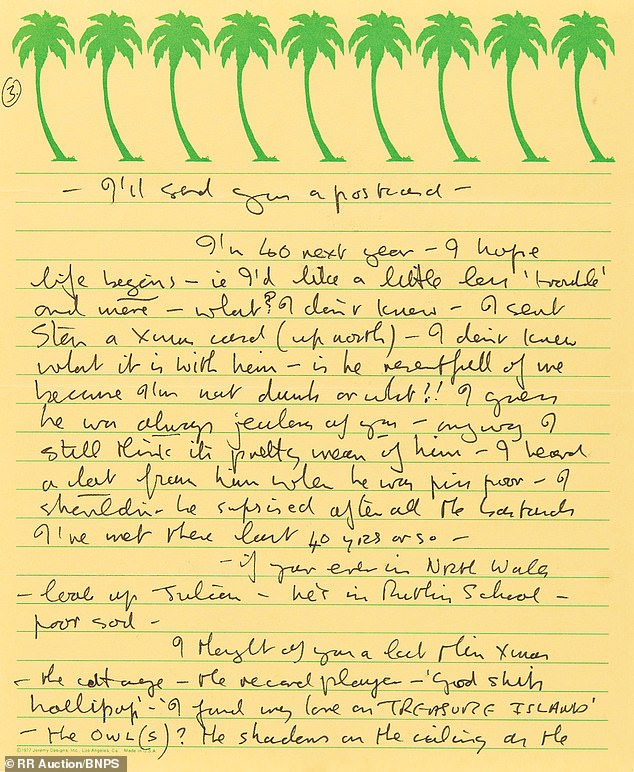 3.
- I'll send you a postcard -
I'm 40 next year - I hope
life begins - ie I'd like a little less 'trouble'
and more - what? I don't know - I sent
Stan a Xmas card (up north) - I don't know
what it is with him - is he resentfull of me
because I'm not dumb or what?! I guess
he was always jealous of you - anyway I
still think its pretty mean of him - I heard
a lot from him when he was piss poor - I
shouldn't be suprised after all the bastards
I've met these last 40 yrs or so -
- if your ever in North Wales
- look up Julian - he's in Ruthin School -
poor sod -
I thought of you a lot this Xmas
- the cottage - the record player - 'Good ship
hollipop' - 'I found my love on TREASURE ISLAND'
- the OWL(S)? the shadows on the ceiling as the
©1977 Jeremy Designs, Inc. Los Angeles, Ca. Made in U.S.A.
© RR Auction/BNPS